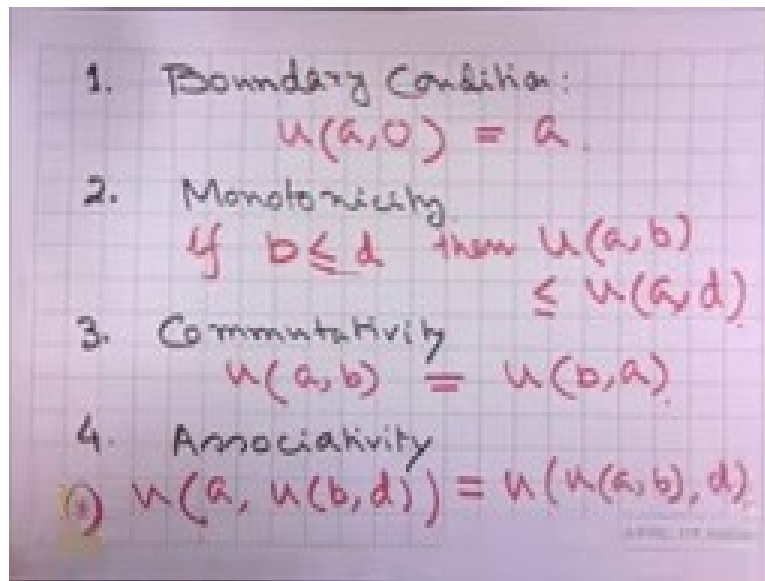 1. Boundary Condition:
u(a,0) = a.
2. Monotonicity
if b ≤ d then u(a,b)
≤ u(a,d)
3. Commutativity
u(a,b) = u(b,a)
4. Associativity
u(a, u(b,d)) = u(u(a,b),d)